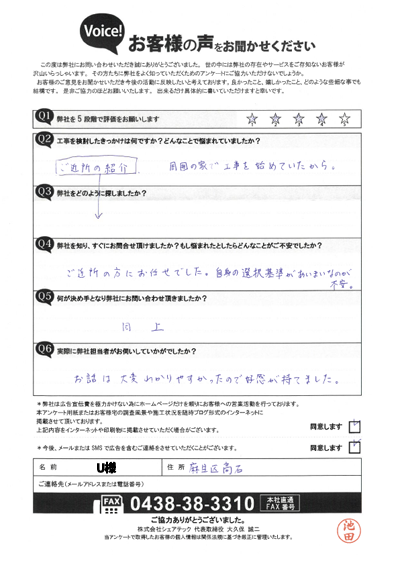 Voice!
お客様の声をお聞かせください
この度は弊社にお問い合わせいただき誠にありがとうございました。世の中には弊社の存在やサービスをご存知ないお客様が
沢山いらっしゃいます。その方たちに弊社をよく知っていただくためのアンケートにご協力いただけないでしょうか。
お客様のご意見をお聞かせいただき今後の活動に反映したいと考えております。良かったこと、嬉しかったこと、どのような些細な事でも
結構です。是非ご協力のほどお願いいたします。出来るだけ具体的に書いていただけますと幸いです。
Q1 弊社を5段階で評価をお願いします
Q2 工事を検討したきっかけは何ですか?どんなことで悩まれていましたか?
ご近所の紹介 周囲の家で工事を始めていたから。
Q3 弊社をどのように探しましたか?
Q4 弊社を知り、すぐにお問合せ頂けましたか?もし悩まれたとしたらどんなことがご不安でしたか?
ご近所の方にお任せでした。自身の選択基準があいまいなのが
不安。
Q5 何が決め手となり弊社にお問い合わせ頂きましたか?
同上
Q6 実際に弊社担当者がお伺いしていかがでしたか?
お話は大変わかりやすかったので好感が持てました。
*弊社は広告宣伝費を極力かけない為にホームページだけを頼りにお客様への営業活動を行っております。
本アンケート用紙またはお客様宅の調査風景や施工状況を随時ブログ形式のインターネットに
掲載させて頂いております。
上記内容をインターネットや印刷物に掲載させていただく場合がございます。
同意します
*今後、メールまたはSMSで広告を含むご連絡をさせていただくことがございます。
同意します
名前 U様 住所 麻生区高石
ご連絡先(メールアドレスまたは電話番号)
FAX 0438-38-3310 本社直通 FAX番号
ご協力ありがとうございました。
株式会社シェアテック 代表取締役 大久保 誠二
当アンケートで取得したお客様の個人情報は関係法規に基づき厳正に管理いたします。
池田